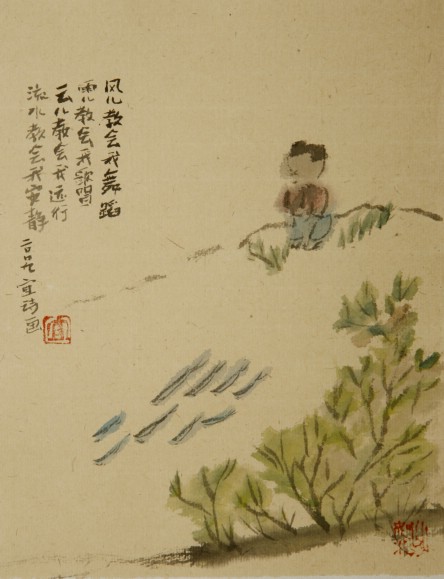 风儿教会我舞蹈
雨儿教会我歌唱
云儿教会我远行
流水教会我安静
二〇〇九
画